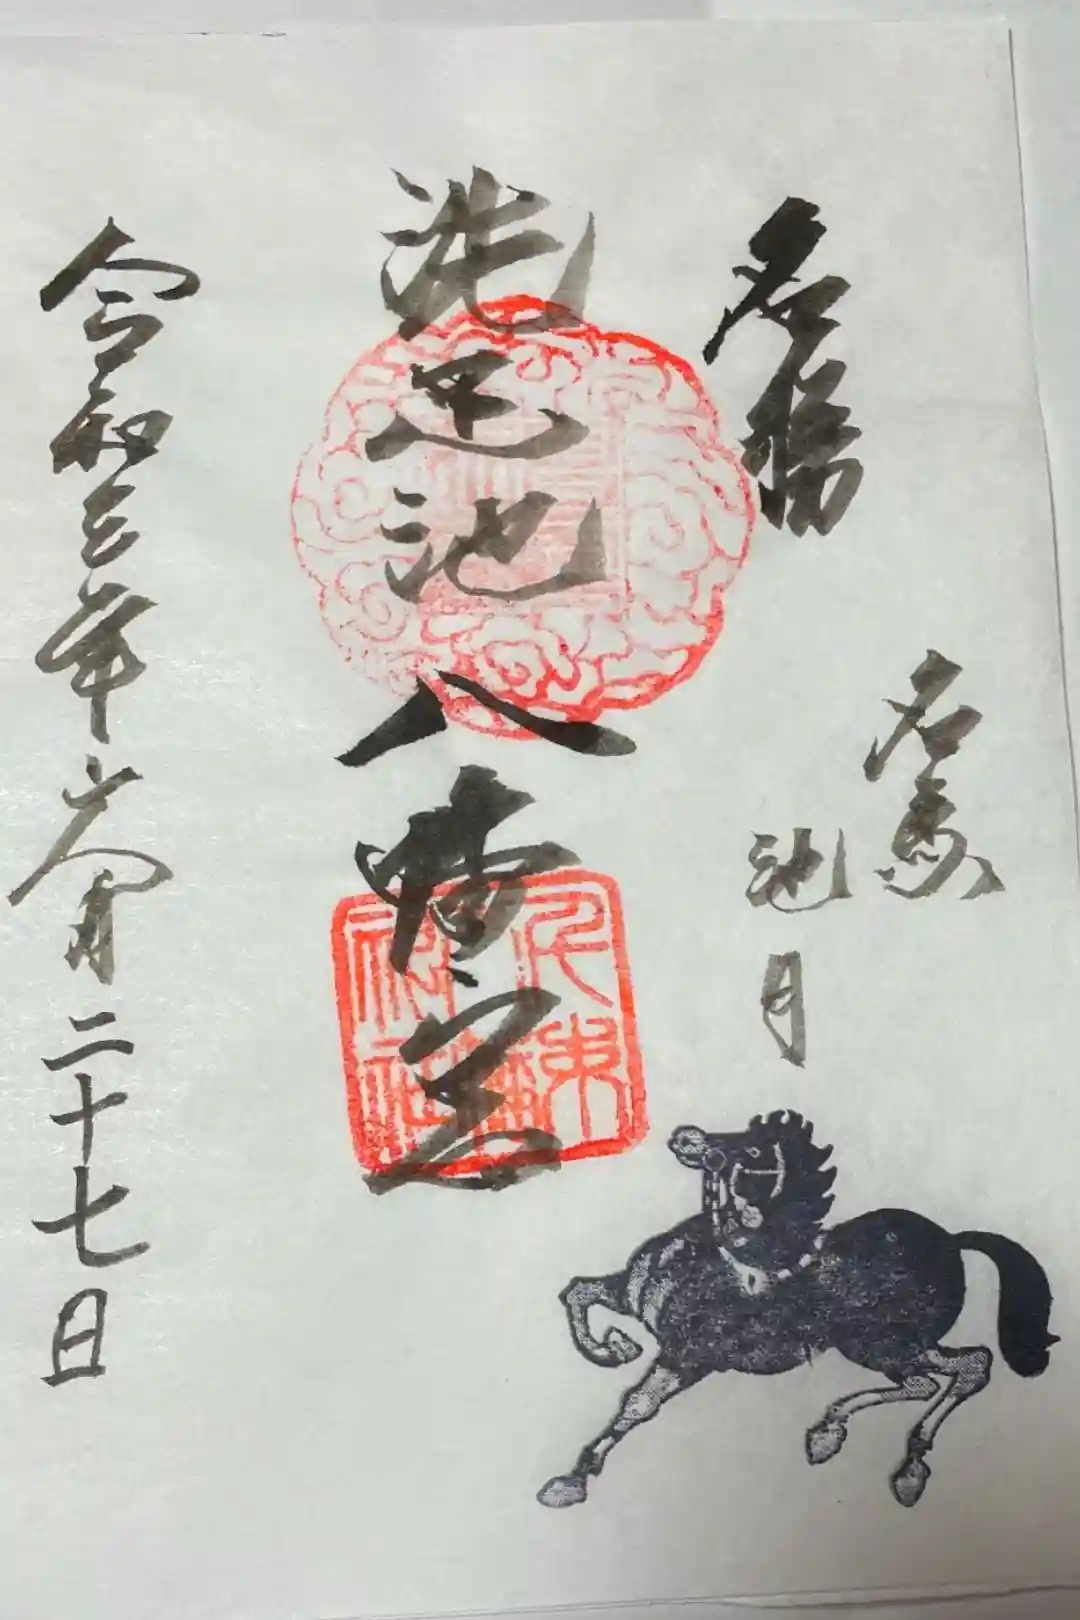 名勝
名馬
池月
洗足池八幡宮
令和三年六月二十七日